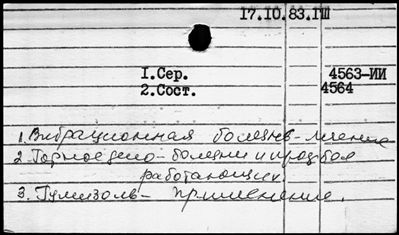 17.10.83.ІШ
1.Сер. 4563-ИИ
2.Сост. 4564
1. Вибрационная болезнь - лечение
2. Горное дело - болезни и профбол
работающих.
3. Гумизоль - применение.